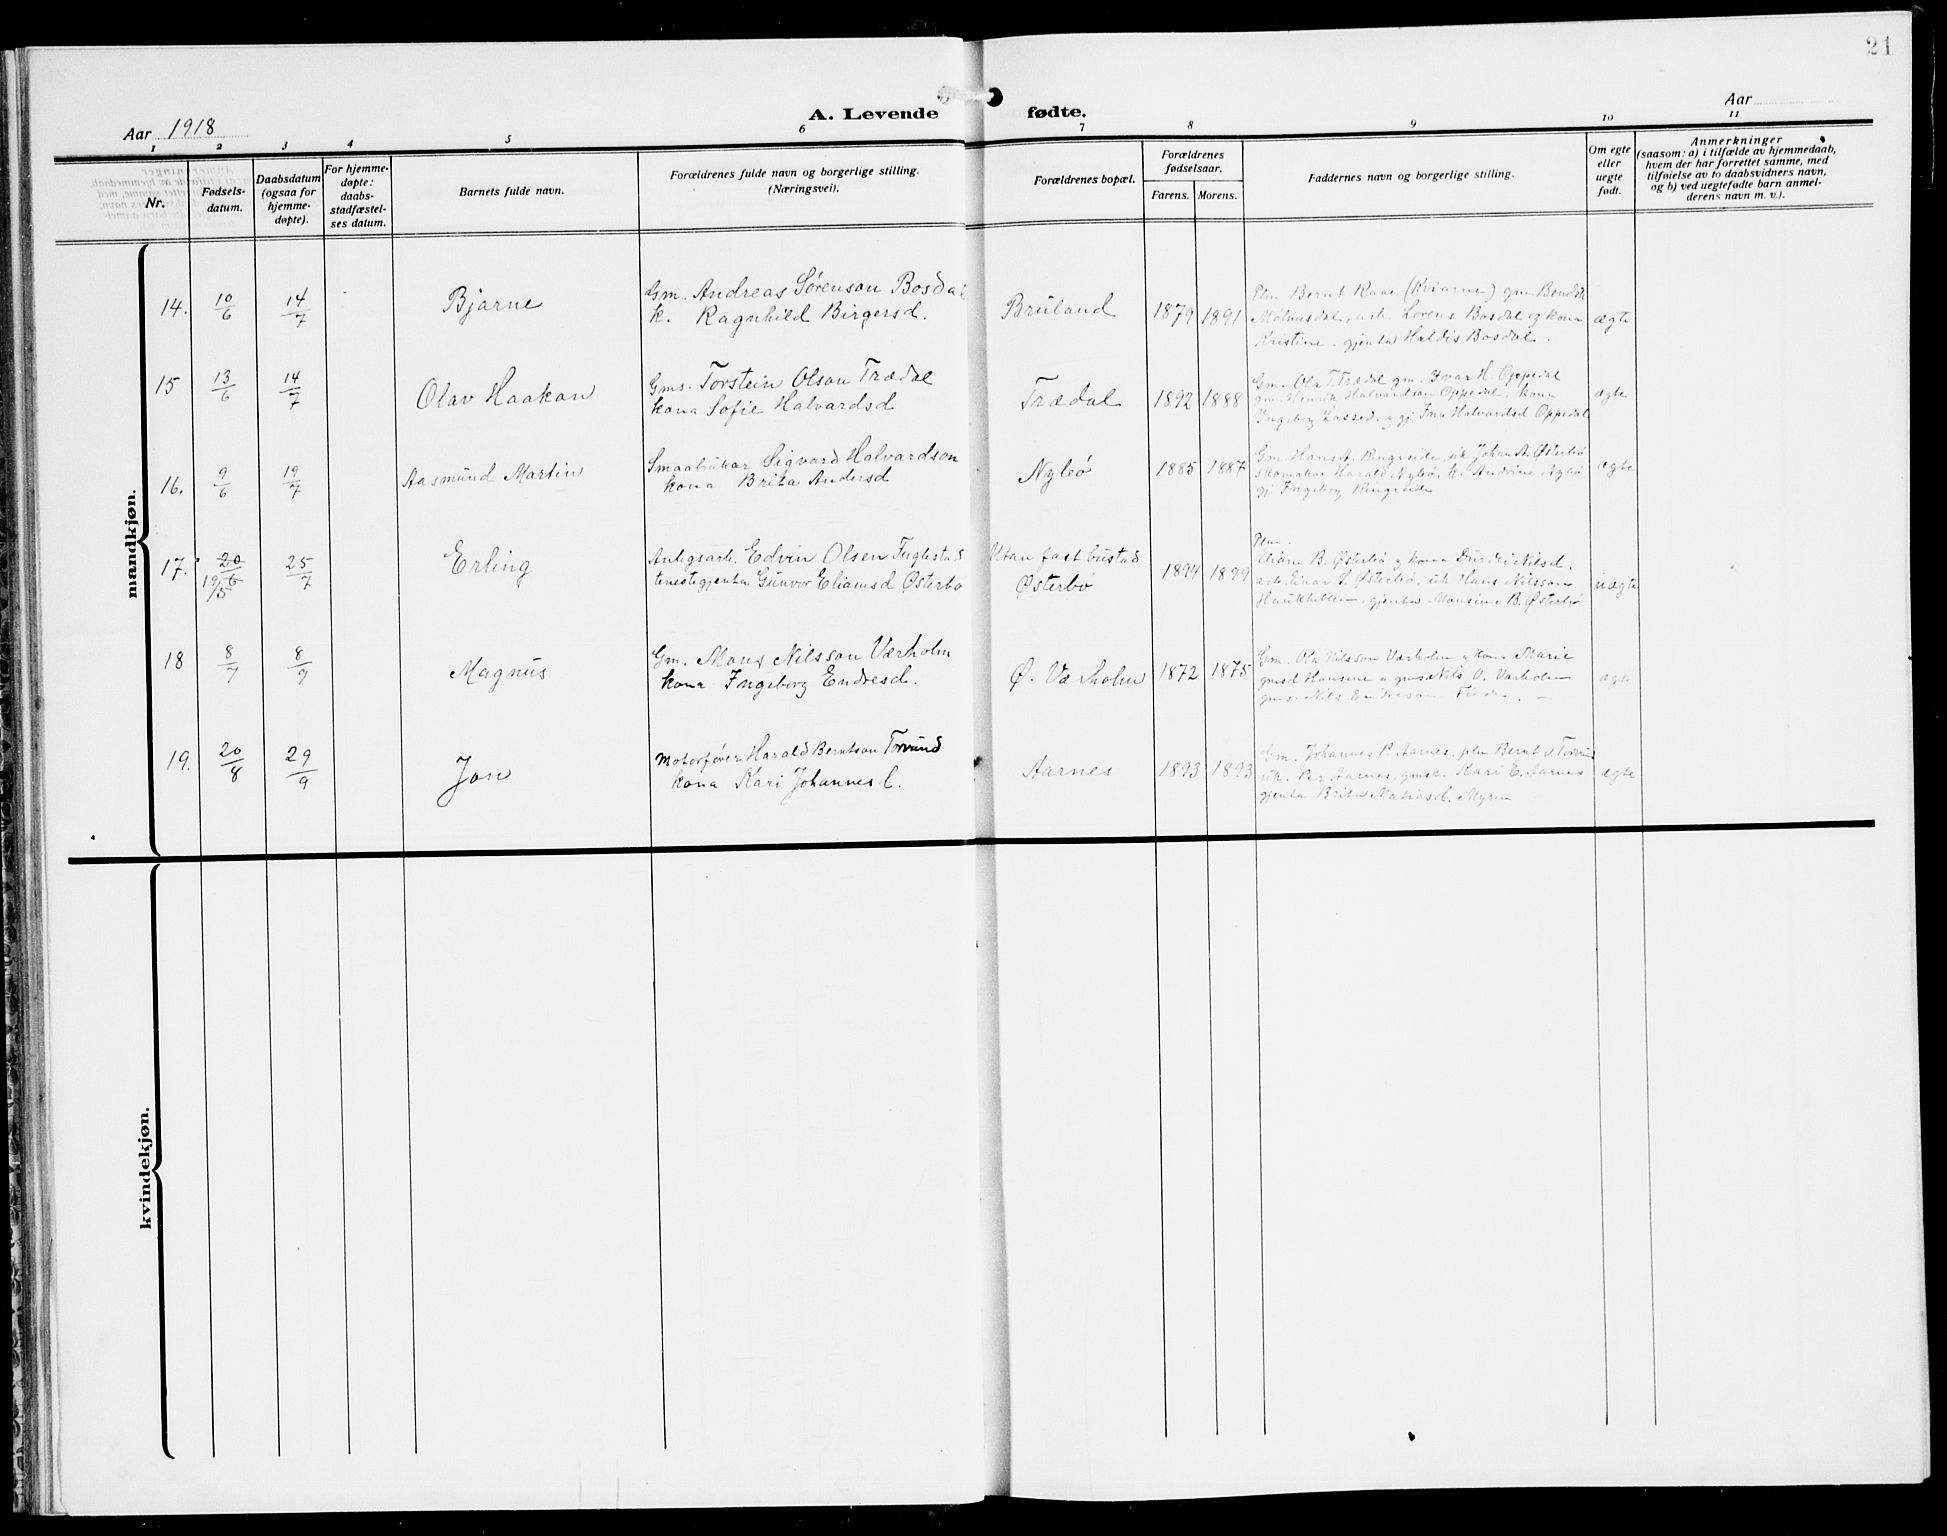 21
Aar 1918
A. Levende fødte.
Aar
1 2 3 4 5 6 7 8 9 10 11
Nr.
Fødsels-
datum.
Daabsdatum
(ogsaa for
hjemme-
døpte).
For hjemme-
døpte:
daabs-
stadfæstel-
ses datum.
Barnets fulde navn.
Forældrenes fulde navn og borgerlige stilling.
(Næringsvei).
Forældrenes bopæl.
Forældrenes
fødselsaar.
Farens. Morens.
Faddernes navn og borgerlige stilling.
Om egte
eller
uegte
født.
Anmerkninger
(saasom: a) i tilfælde av hjemmedaab,
hvem der har forrettet samme, med
tilføielse av to daabsvidners navn,
og b) ved uegtefødte barn anmel-
derens navn m. v.).
mandkjøn.
14. 10/6 14/7 Bjarne
Gm. Andreas Sørenson Bosdal
k. Ragnhild Birgersd.
Bruland 1879 1891
Plm Bernt Raae (Kviarne) gm. Bendik
Molmesdal, arb. Lorens Bosdal og kona
Kristine. gjenta Haldis Bosdal.
ægte
15 13/6 14/7 Olav Haakon
Gms. Torstein Olson Trædal
kona Sofie Halvardsd
Trædal 1892 1888
Gm. Ola T. Trædal gm. Ivar H. Oppedal
gm. Henrik Halvardson Oppedal, kona
Ingeborg Lassed. og gj. Ina Halvardsd Oppedal
ægte
16. 9/6 19/7 Aasmund Martin
Smaabrukar Sigvard Halvardson
kona Brita Andersd
Nybø 1885 1887
Gm. Hans A. Ringereide, uk Johan A. Østerbø
skomakar Harald Nybø, k. Andrine Nybø
gj. Ingeborg Ringereide
ægte
17. 20/6 19/5 25/7 Erling
Anlegsarb. Edvin Olsen Fuglestad
tenestegjenta Gunvor Eliamsd Østerbø
Utan fast bustad
Østerbø 1894 1899
Plm.
Eliam B. Østerbø og kona Durdei Nilsd.
arb. Einar S. Østerbø, uk Hans Nilsson
Haukhellen, gjenta Monsine B. Østerbø
uægte
18 8/7 8/9 Magnus
Gm. Mons Nilsson Værholm
kona Ingeborg Endresd.
Ø. Værholm 1872 1875
Gm. Ola Nilsson Værholm og kona Marie
gmsd Hansine og gms Nils O. Værholm
gms. Nils Endreson Førde. —
ægte
19. 20/8 29/9 Jon
Motorfører Harald Berntson Torvund
kona Kari Johannesd.
Aarnes 1893 1893
Gm. Johannes P. Aarnes, plm Bernt O. Torvund
uk. Per Aarnes, gmsk. Kari E. Aarnes
gjenta Brita Matiasd. Myren
ægte
kvindekjøn.